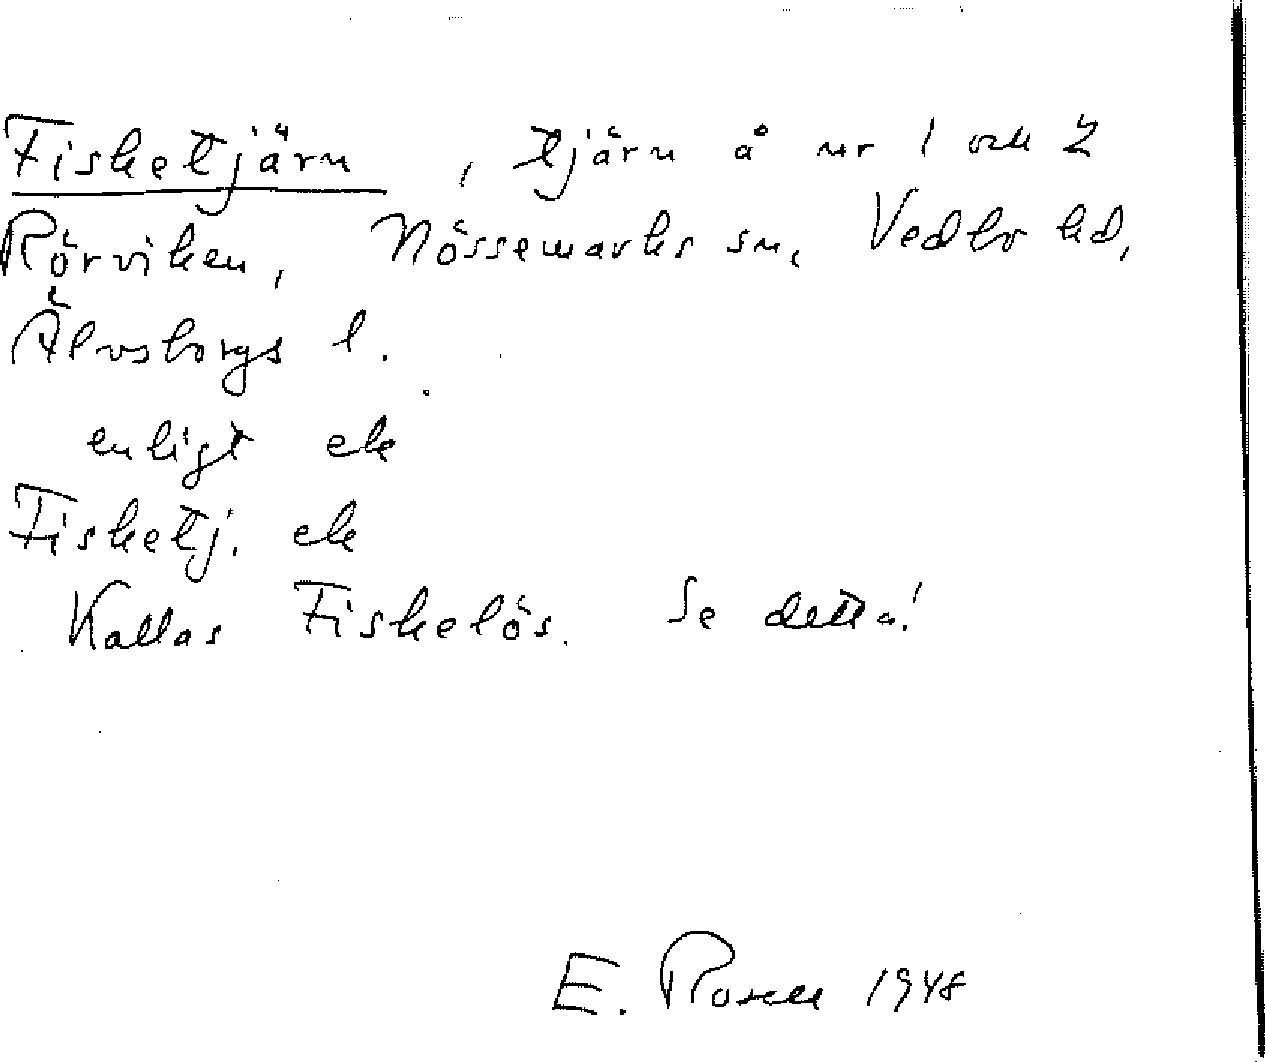 Fisketjärn, tjärn å nr 1 och 2
Rörviken, Nössemarks sn, Vedbo hd,
Älvsborgs l.
enligt ek
Fisketj. ek
Kallas Fiskelös. Se detta!
E. Rosell 1948